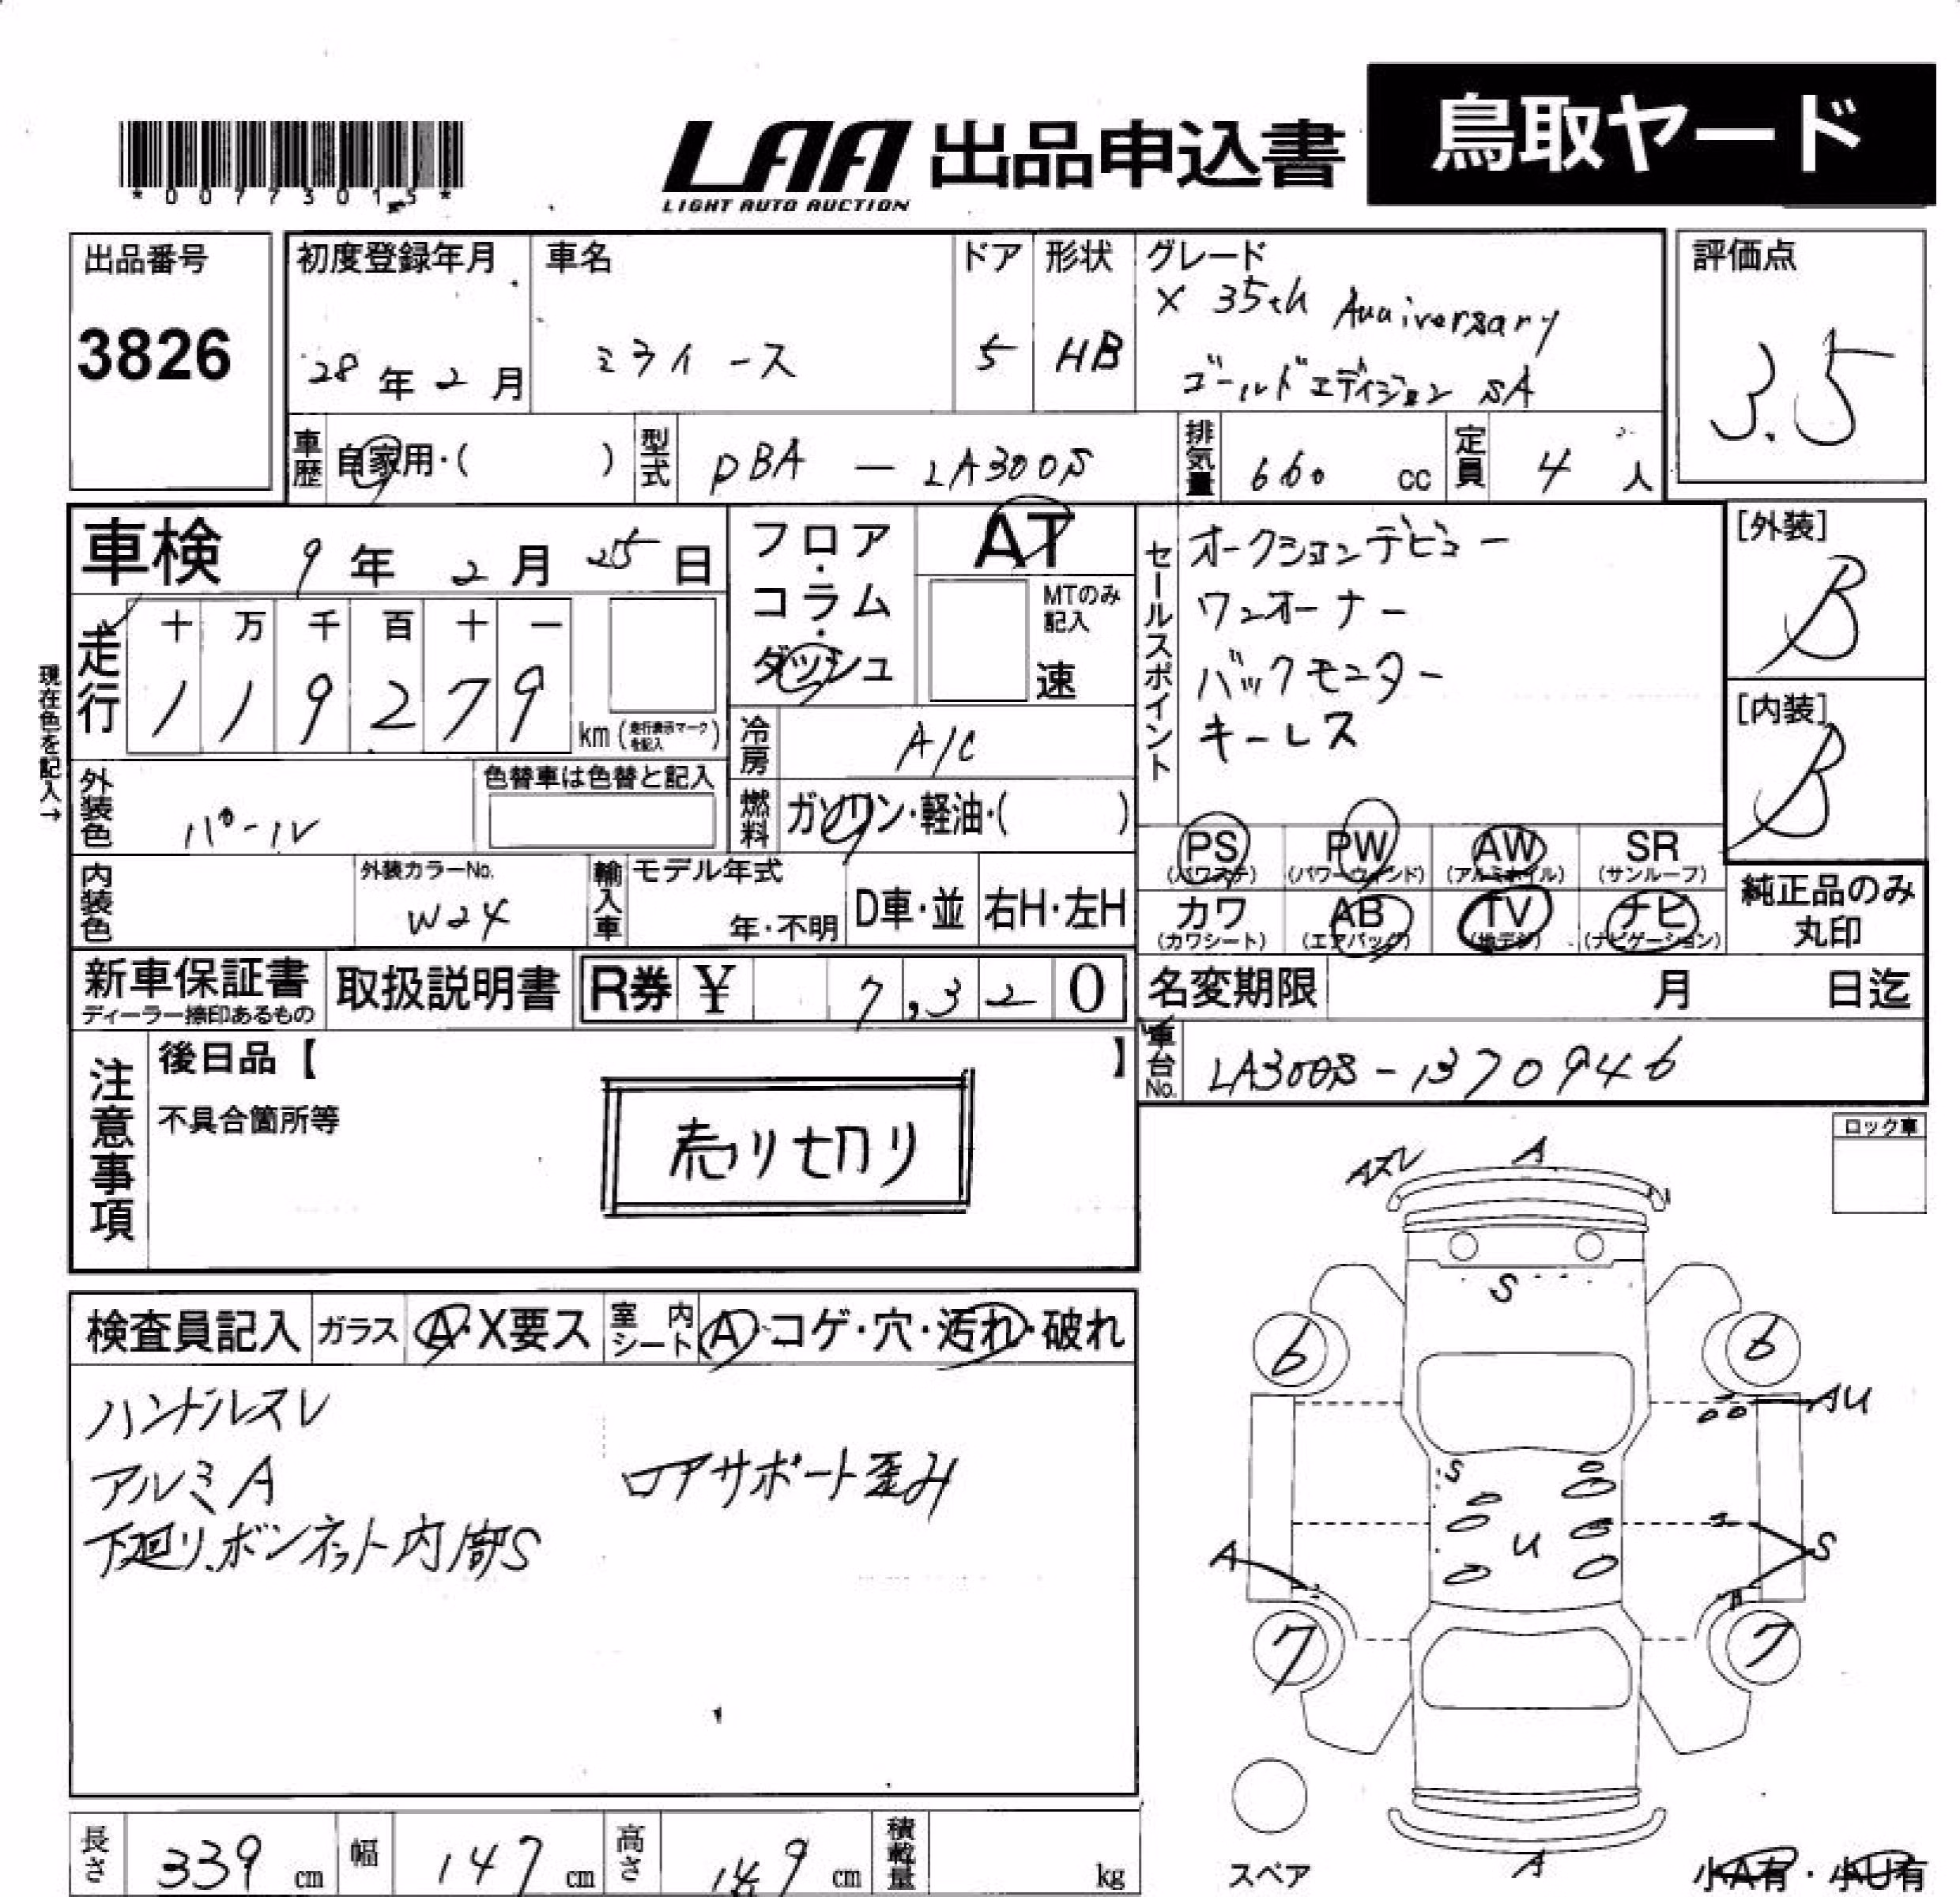 *0077301_5*
LAA 出品申込書
LIGHT AUTO AUCTION
鳥取ヤード
出品番号
3826
初度登録年月
28年2月
車名
ミライース
ドア
5
形状
HB
グレード
X 35th Anniversary
ゴールドエディション SA
評価点
3.5
車歴 自家用・( )
型式 DBA - LA300S
排気量 660 cc
定員 4 人
車検 9年2月25日
現在色を記入→
走行 十 万 千 百 十 一
1 1 9 2 7 9 km(走行表示マークを記入)
フロア・コラム・ダッシュ
AT
MTのみ記入
速
冷房 A/C
燃料 ガソリン・軽油・( )
セールスポイント
オークションデビュー
ワンオーナー
バックモニター
キーレス
[外装]
B
[内装]
B
外装色 パール
色替車は色替と記入
内装色
外装カラーNo.
W24
輸入車 モデル年式
年・不明
D車・並 右H・左H
PS (パワステ) PW (パワーウィンド) AW (アルミホイル) SR (サンルーフ)
カワ (カワシート) AB (エアバッグ) TV (地デジ) ナビ (ナビゲーション)
純正品のみ
丸印
新車保証書
ディーラー捺印あるもの
取扱説明書
R券 ¥ 7,320
名変期限 月 日迄
車台No. LA300S-1370946
注意事項
後日品【 】
不具合箇所等
売り切り
ロック車
検査員記入 ガラス A・X要ス 室内シート A・コゲ・穴・汚れ・破れ
ハンドルスレ
アルミA
下廻り、ボンネット内部S
ロアサポート歪み
Aズレ A
S
6 6
AU
S
U
A S
7 7
スペア
A
小A有・小U有
長さ 339 cm
幅 147 cm
高さ 149 cm
積載量 kg